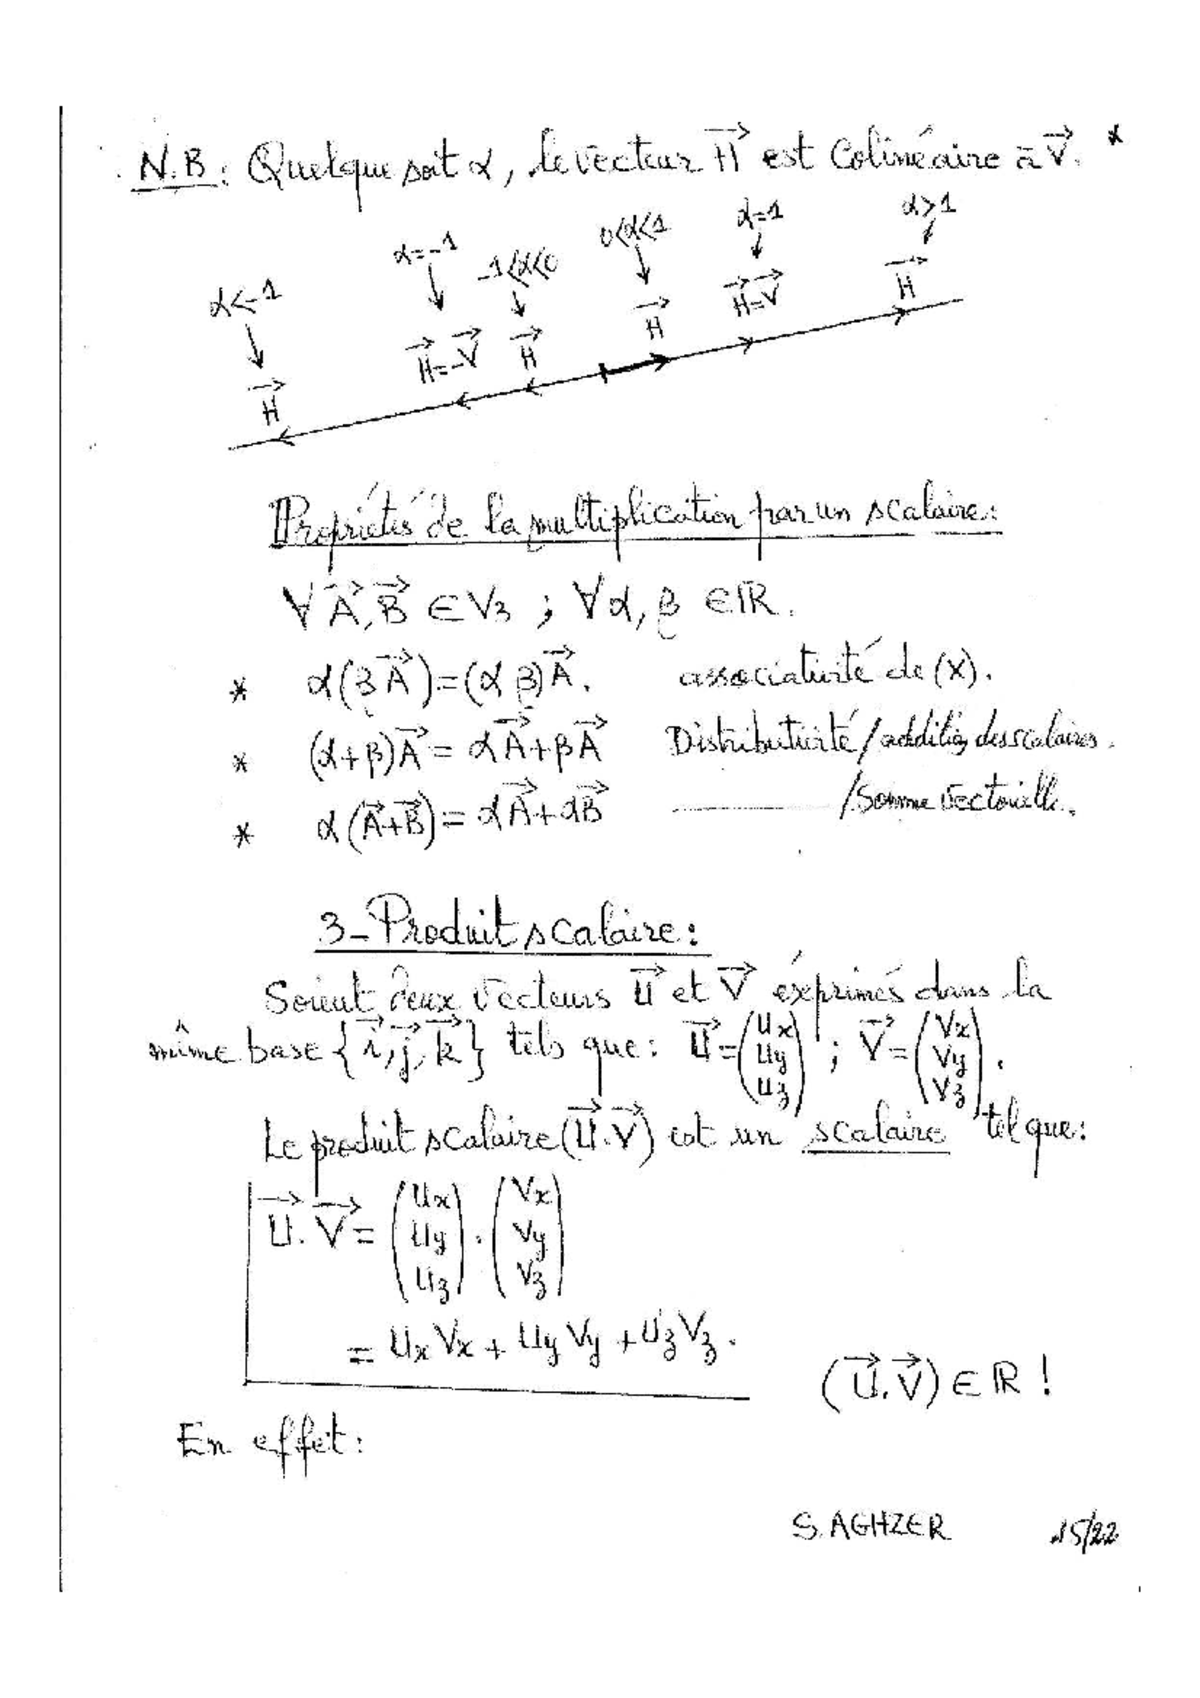 N.B : Quelque soit α, le vecteur H⃗ est Colinéaire à V⃗. *
α<-1 α=-1 -1<α<0 0<α<1 α=1 α>1
H⃗ H⃗=-V⃗ H⃗ H⃗ H⃗=V⃗ H⃗
Propriétés de la multiplication par un scalaire:
∀ A⃗, B⃗ ∈ V₃ ; ∀ α, β ∈ ℝ.
* α(βA⃗)=(αβ)A⃗. associativité de (x).
* (α+β)A⃗ = αA⃗+βA⃗ Distributivité/addition des scalaires.
* α(A⃗+B⃗) = αA⃗+αB⃗ ———— /Somme vectorielle.
3_Produit scalaire:
Soient deux vecteurs U⃗ et V⃗ éxprimés dans la
même base {i⃗, j⃗, k⃗} tels que: U⃗=(Ux Uy Uz) ; V⃗=(Vx Vy Vz).
Le produit scalaire (U⃗.V⃗) est un scalaire tel que:
U⃗.V⃗ = (Ux Uy Uz) . (Vx Vy Vz)
= UxVx + UyVy + UzVz.
(U⃗.V⃗) ∈ ℝ !
En effet:
S.AGHZER 15/22